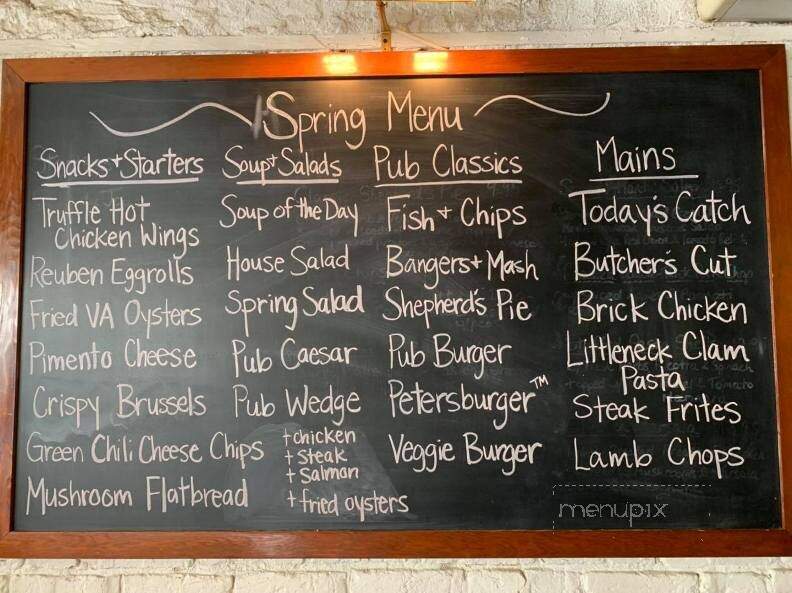 Spring Menu
Snacks + Starters
Truffle Hot
Chicken Wings
Reuben Eggrolls
Fried VA Oysters
Pimento Cheese
Crispy Brussels
Green Chili Cheese Chips
Mushroom Flatbread
Soup + Salads
Soup of the Day
House Salad
Spring Salad
Pub Caesar
Pub Wedge
+ chicken
+ steak
+ salmon
+ fried oysters
Pub Classics
Fish + Chips
Bangers + Mash
Shepherd's Pie
Pub Burger
Petersburger™
Veggie Burger
Mains
Today's Catch
Butcher's Cut
Brick Chicken
Littleneck Clam
Pasta
Steak Frites
Lamb Chops
menupix